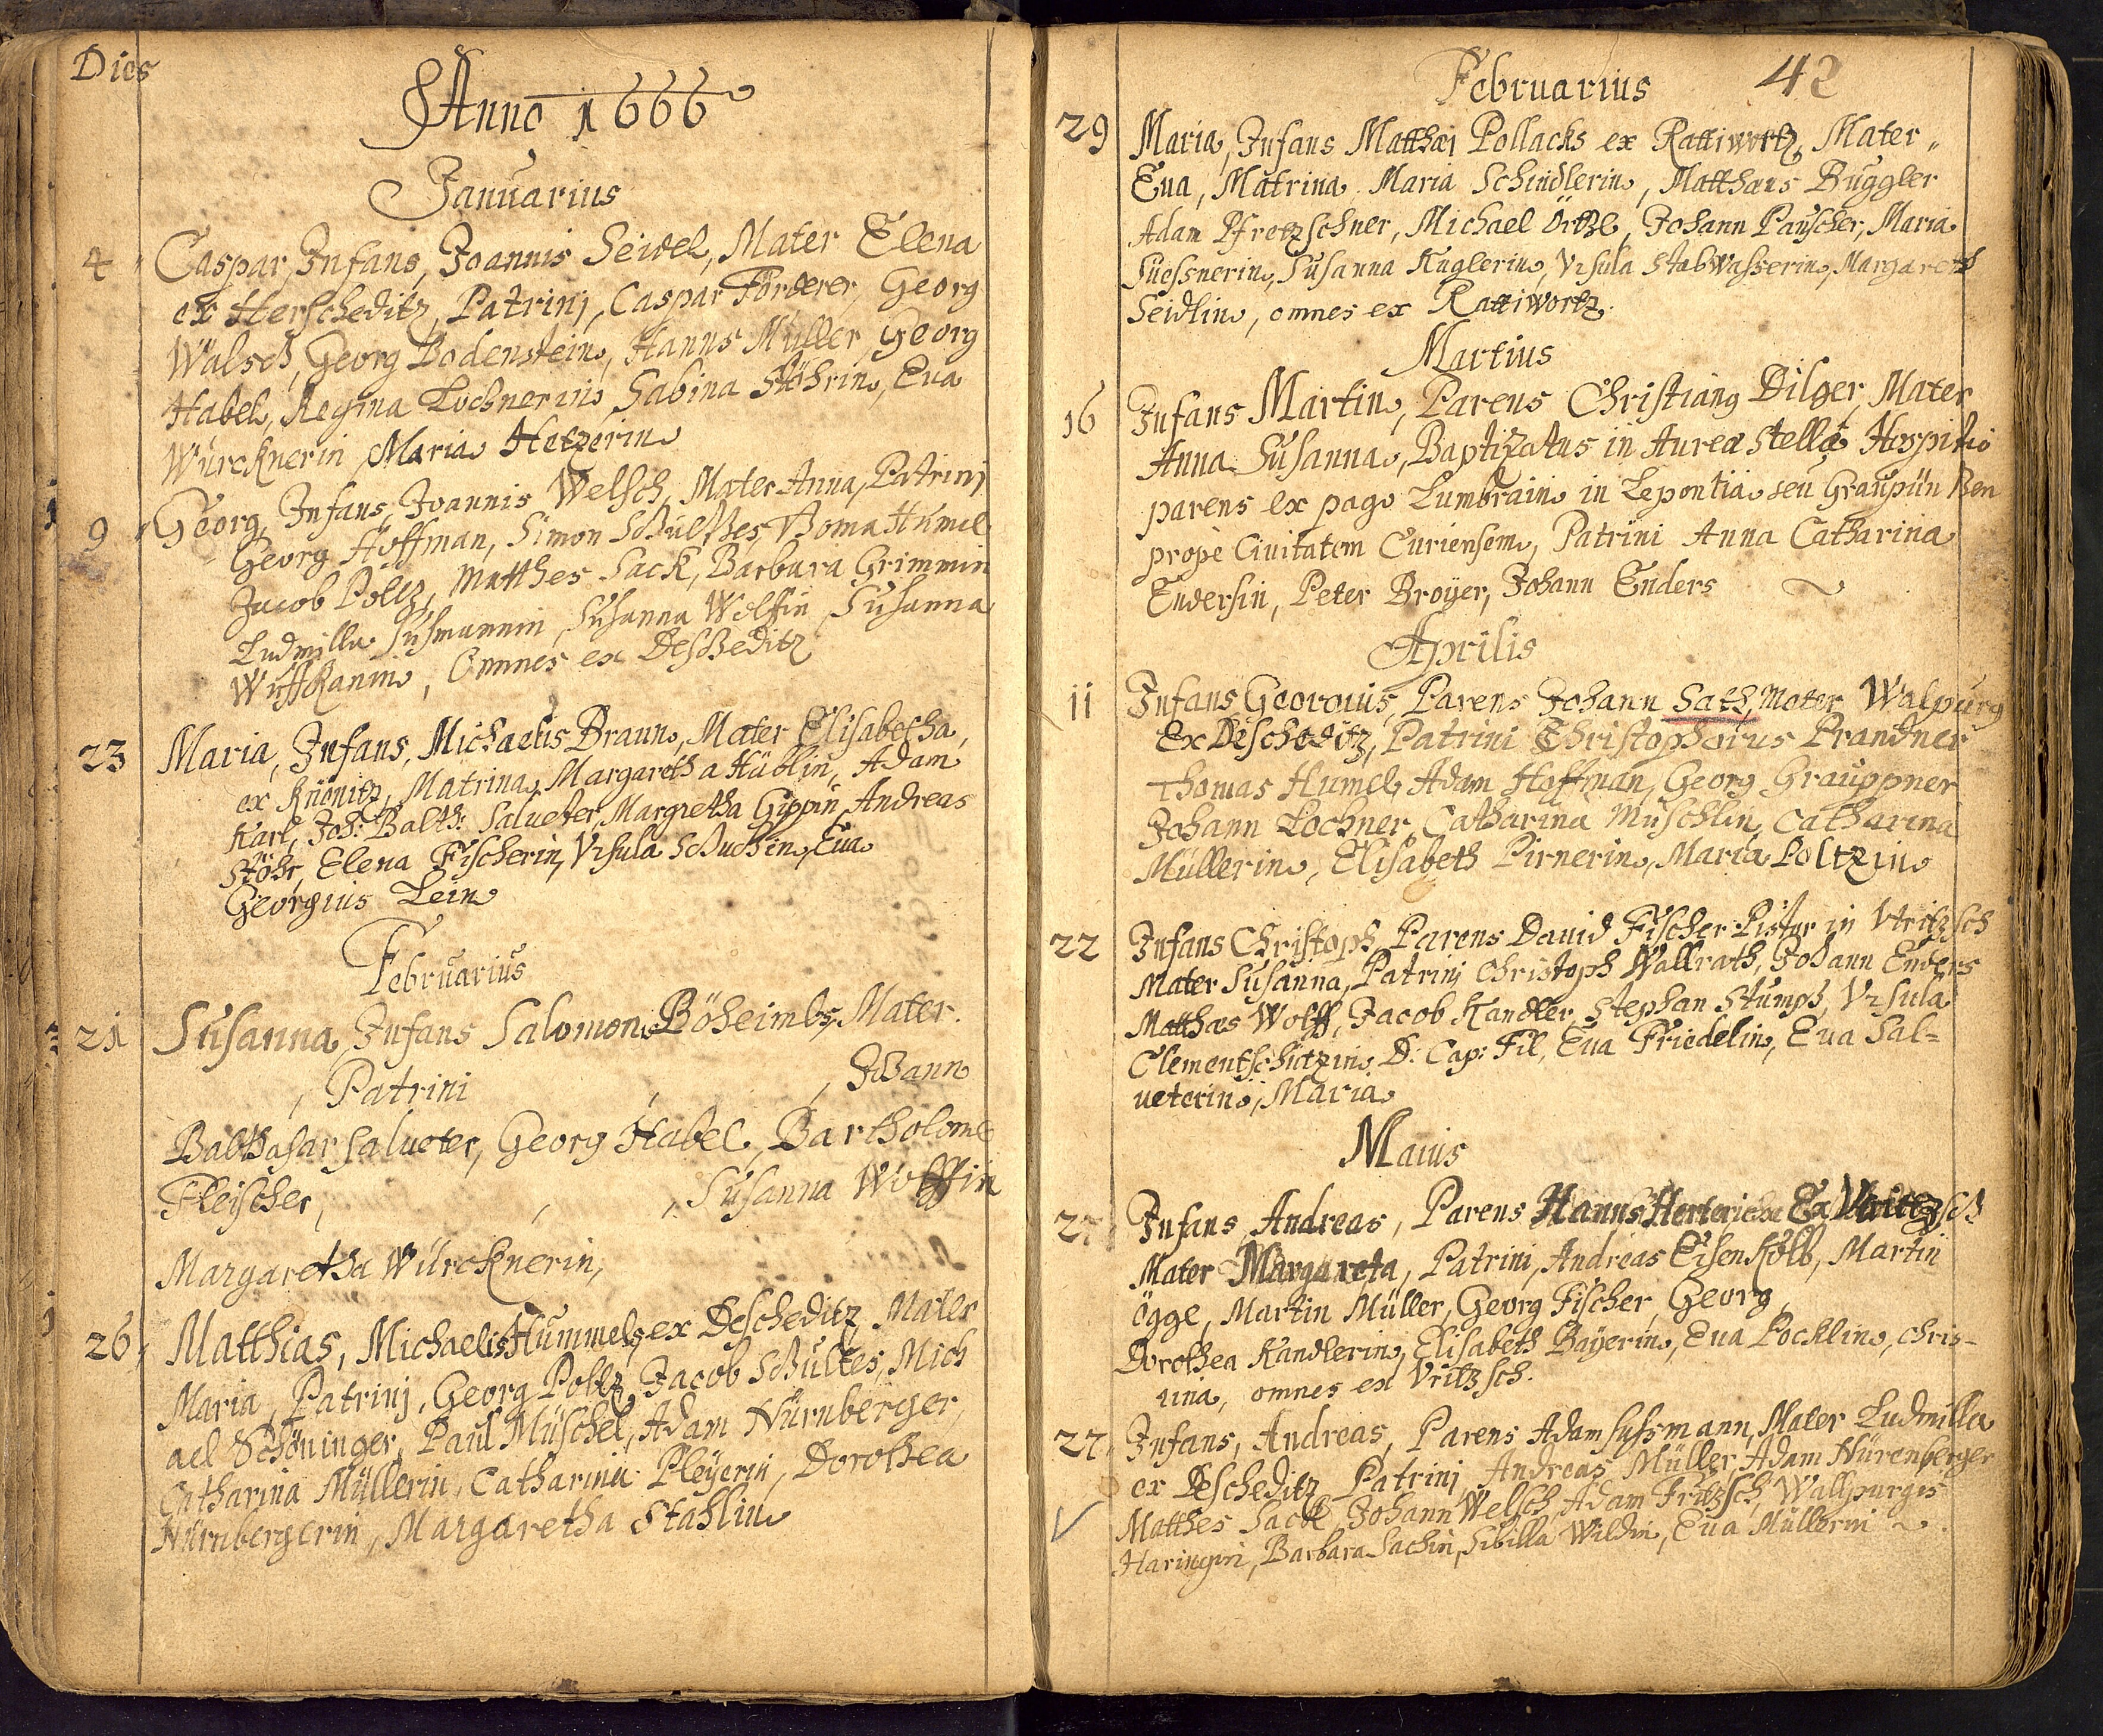 Dies
Anno 1666
Januarius
4 Caspar, Infans, Joannis Seidel, Mater Elena
ex Herscheditz, Patrinj, Caspar Förderer, Georg
Wälsch, Georg Bodenstein, Hanns Müller, Georg
Habel, Regina Lochnerin, Sabina Stöhrin, Eua
Würcknerin, Maria Hetzerin
9 Georg, Infans, Joannis Welsch, Mater Anna, Patrinj
Georg Hoffman, Simon Schultes, Thoma Humel
Jacob Poltz, Matthes Sack, Barbara Grimmin
Ludmilla Susmannin, Susanna Wolffin, Susanna
Wuffkanin, Omnes ex Descheditz
23 Maria, Infans, Michaelis Braun, Mater Elisabetha,
ex Knönitz, Matrina, Margaretha Hüblin, Adam
Karl, Joh: Balth: Salueter, Margretha Gippin, Andreas
Stöhr, Elena Fischerin, Vrsula Schuchin, Eua
Georgius Lein
Februarius
21 Susanna, Infans Salomon Böheimbs, Mater.
, Patrini , , Johann
Balthasar Salueter, Georg Habel, Bartholome
Fleischer, , , Susanna Wolffin
Margaretha Würcknerin,
26 Matthias, Michaelis Hummels, ex Descheditz, Mater
Maria, Patrinj, Georg Poltz, Jacob Schultes, Mich
ael Schöninger, Paul Müschel, Adam Nürnberger,
Catharina Müllerin, Catharina Pleyerin, Dorothea
Nürnbergerin, Margaretha Stahlin
Februarius 42
29 Maria, Infans Matthæi Pollacks ex Rattiwortz, Mater„
Eua, Matrina Maria Schindlerin, Matthæus Buggler
Adam Pfretzschner, Michael Örttl, Johann Pauscher, Maria
Suessnerin, Susanna Kuglerin, Vrsula Stabwasserin, Margareth
Seidlin, omnes ex Rattiwortz.
Martius
16 Infans Martin, Parens Christiang Dilger, Mater
Anna Susanna, Baptizatus in Aurea Stella Hospitio
parens ex pago Lumbrain in Lepontia seu Graupün Ben
prope Ciuitatem Curiensem, Patrini Anna Catharina
Endersin, Peter Broÿer, Johann Enders
Aprilis
11 Infans Georgius, Parens Johann Satz, Mater Walpurg
Ex Descheditz, Patrini Christophorus Prandner
Thomas Humel, Adam Hoffman, Georg Grauppner
Johann Lochner, Catharina Muschlin, Catharina
Müllerin, Elisabeth Pirnerin, Maria Poltzin
22 Infans Christoph, Parens Dauid Fischer Pistor in Vritzsch
Mater Susanna, Patrinj Christoph Wallrath, Johann Enders
Matthæs Wolff, Jacob Kandler, Stephan Stumph, Vrsula
Clementschitzin, D: Cap: Fil, Eua Friedelin, Eua Sal=
ueterin, Maria
Maius
27 Infans, Andreas, Parens Hanns Herterich Ex Vritzsch
Mater Margareta, Patrini, Andreas Eisenkolb, Martin
Ögge, Martin Müller, Georg Fischer, Georg,
Dorothea Kandlerin, Elisabeth Bayerin, Eua Pocklin, Chris-
tina, omnes ex Vritzsch.
27 Infans, Andreas, Parens Adam Susmann, Mater Ludmilla
ex Descheditz Patrinj, Andreas Müller, Adam Nürenberger
Matthes Sack, Johann Welsch, Adam Fritzsch, Wallpurgis
Haringin, Barbara Sachin, Sibilla Wildin, Eua Müllerin